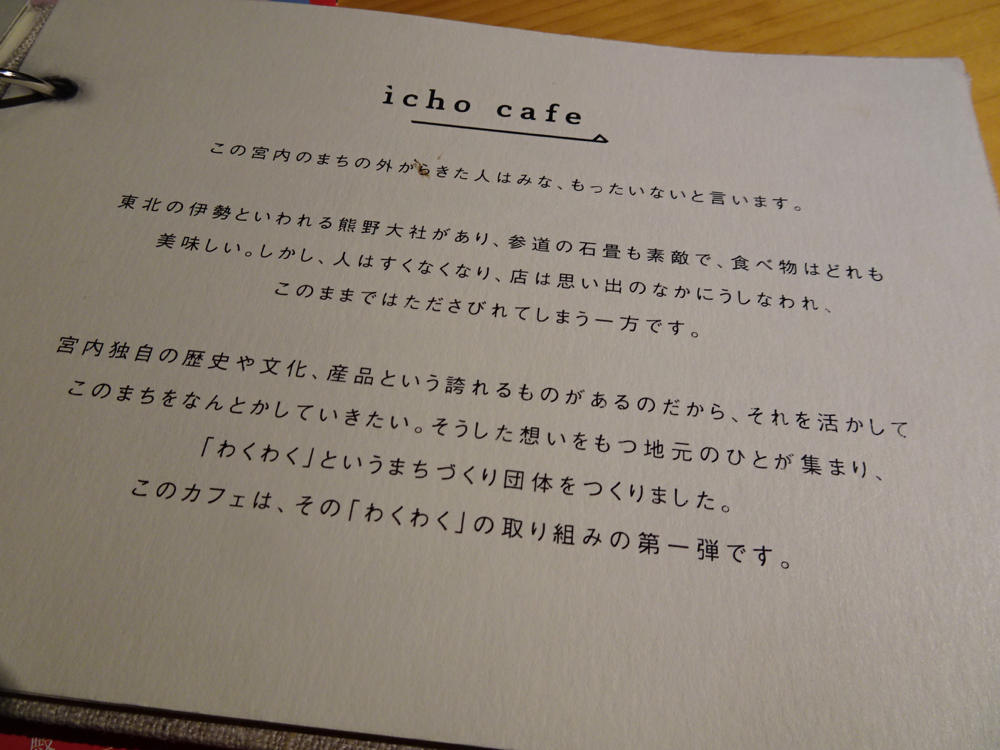 icho cafe
この宮内のまちの外からきた人はみな、もったいないと言います。
東北の伊勢といわれる熊野大社があり、参道の石畳も素敵で、食べ物はどれも
美味しい。しかし、人はすくなくなり、店は思い出のなかにうしなわれ、
このままではたださびれてしまう一方です。
宮内独自の歴史や文化、産品という誇れるものがあるのだから、それを活かして
このまちをなんとかしていきたい。そうした想いをもつ地元のひとが集まり、
「わくわく」というまちづくり団体をつくりました。
このカフェは、その「わくわく」の取り組みの第一弾です。